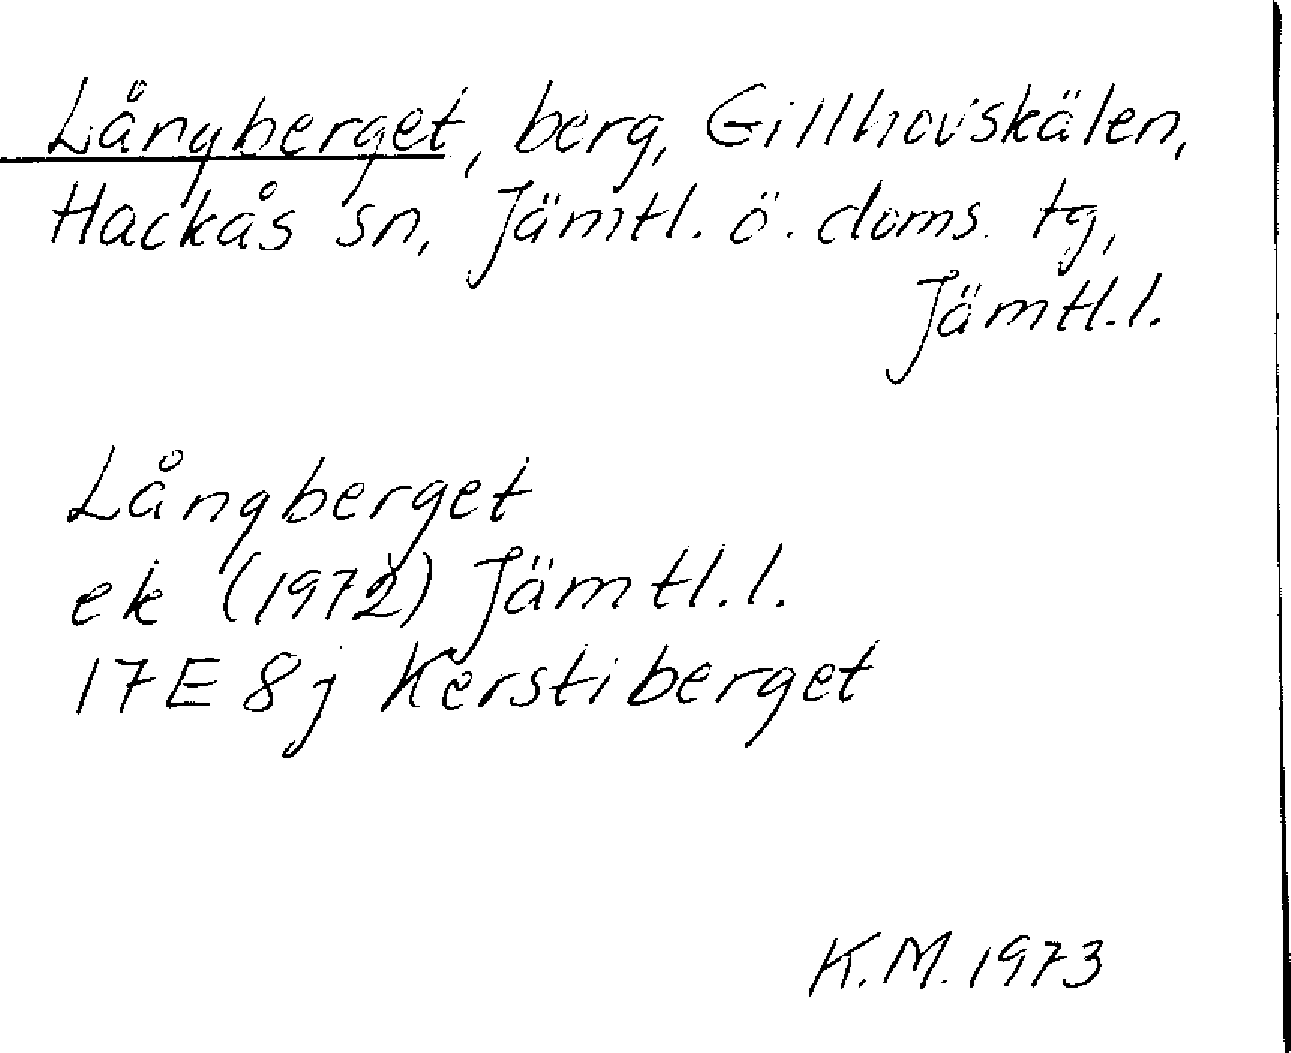 Långberget, berg, Gillhovskälen,
Hackås sn, Jämtl. ö. doms. tg,
Jämtl.l.
Långberget
ek (1972) Jämtl.l.
17E 8j Kerstiberget
K.M. 1973